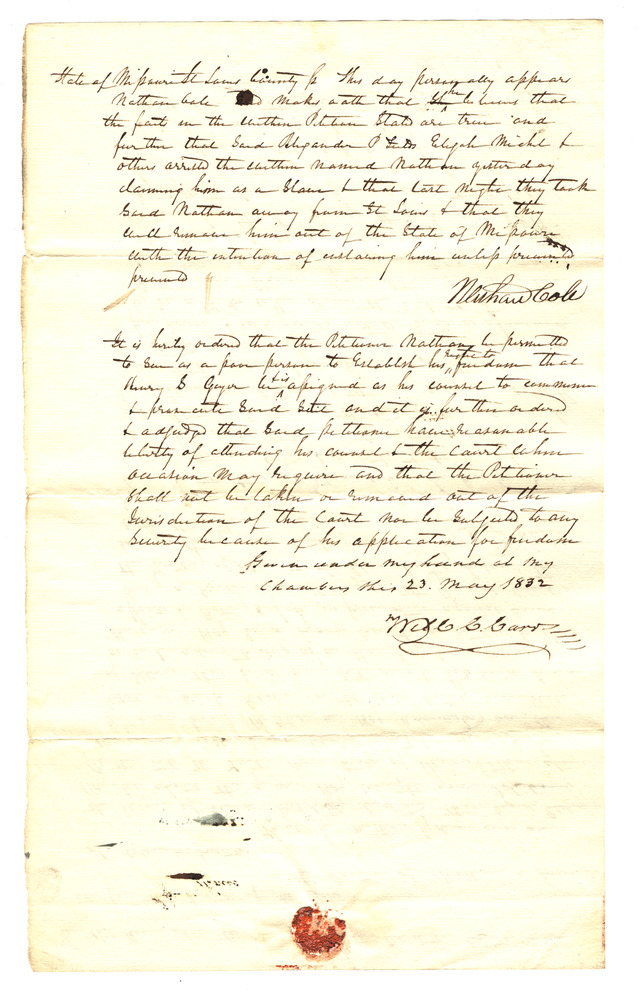 State of Missouri St Louis County ss This day personally appears
Nathan Cole and makes oath that he believes that
the facts in the within Petition Stated are true and
further that Said Alexander P Fields Elijah Michel &
others arrested the within named Nathan yesterday
claiming him as a Slave & that last night they took
Said Nathan away from St Louis & that they
will remove him out of the State of Missouri
with the intention of enslaving him unless prevented
prevented
Nathan Cole
It is hereby ordered that the Petitioner Nathan be permitted
to Sue as a poor person to Establish his right to freedom that
Henry S Geyer be & is assigned as his counsel to commence
& prosecute Said Suit and it is further ordered
& adjudged that Said petitioner have reasonable
liberty of attending his counsel & the Court when
occasion may require and that the Petitioner
Shall not be taken or removed out of the
Jurisdiction of the Court nor be Subjected to any
Severity because of his application for freedom
Given under my hand at my
Chambers this 23. May 1832
Wm C Carr